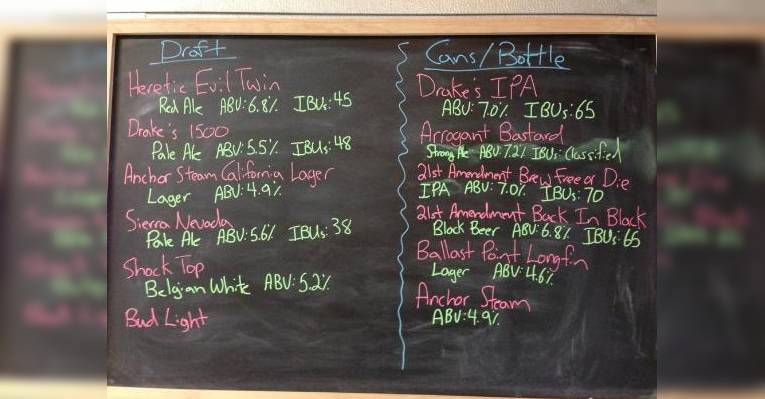 Draft
Heretic Evil Twin
Red Ale ABV: 6.8% IBUs: 45
Drake's 1500
Pale Ale ABV: 5.5% IBUs: 48
Anchor Steam California Lager
Lager ABV: 4.9%
Sierra Nevada
Pale Ale ABV: 5.6% IBUs: 38
Shock Top
Belgian White ABV: 5.2%
Bud Light
Cans/Bottle
Drake's IPA
ABV: 7.0% IBUs: 65
Arrogant Bastard
Strong Ale ABV: 7.2% IBUs: Classified
21st Amendment Brew Free or Die
IPA ABV: 7.0% IBUs: 70
21st Amendment Back In Black
Black Beer ABV: 6.8% IBUs: 65
Ballast Point Longfin
Lager ABV: 4.6%
Anchor Steam
ABV: 4.9%